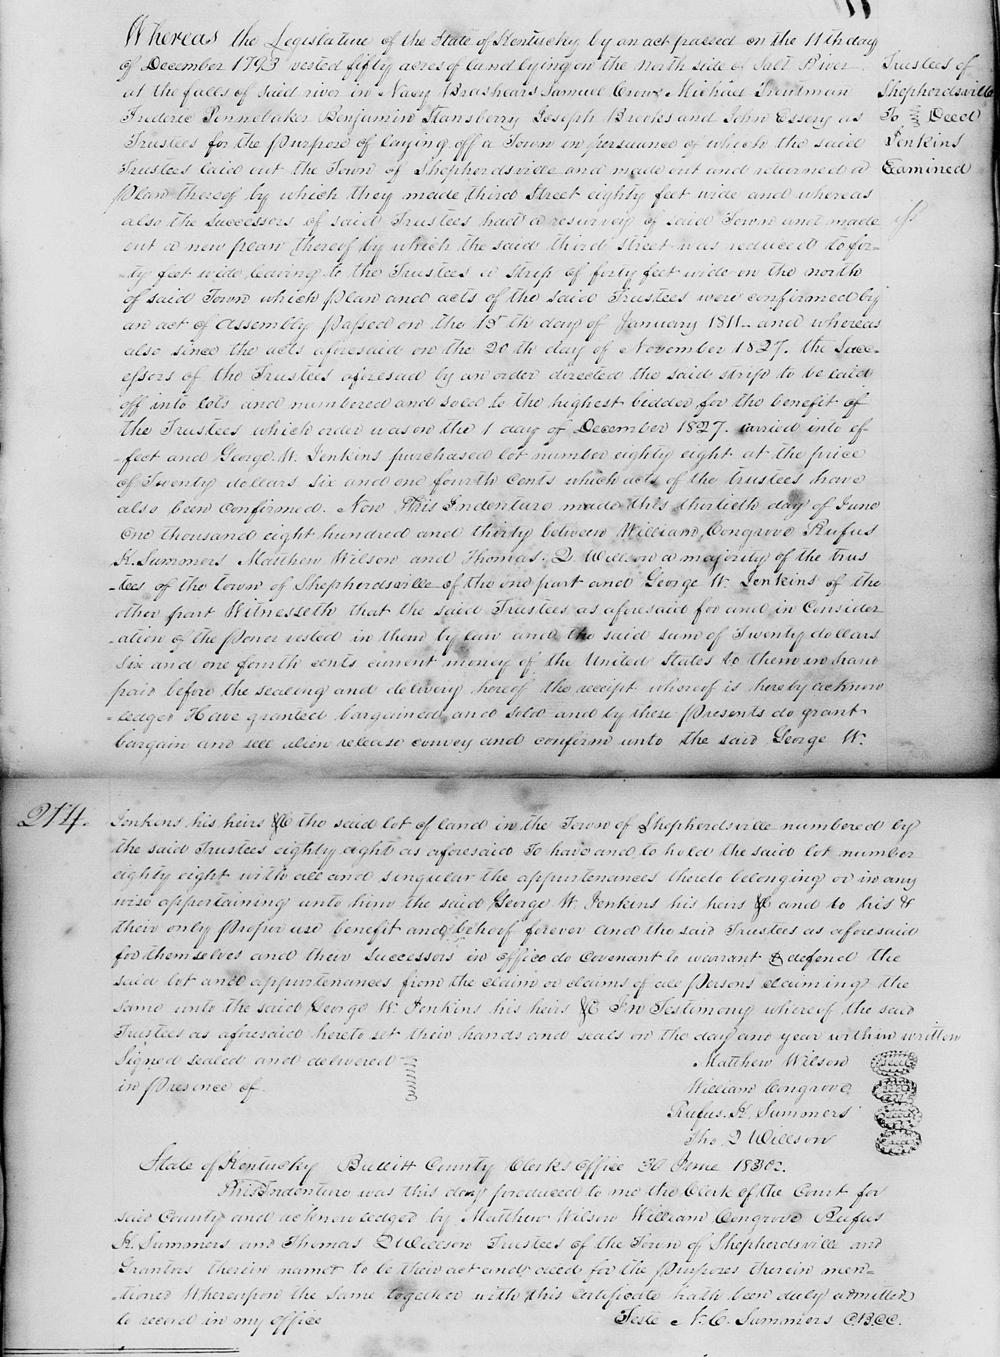 Whereas the Legislature of the State of Kentucky by an act passed on the 11th day
of December 1793 vested fifty acres of land lying on the north side of Salt River
at the falls of said river in Nacy Brashears Samuel Crow Michael Troutman
Frederic Pennebaker Benjamin Stansberry Joseph Brooks and John Essery as
Trustees for the purpose of laying off a Town in persuance of which the said
Trustees laid out the Town of Shepherdsville and made out and returned a
plan thereof by which they made third Street eighty feet wide and whereas
also the Successors of said Trustees had a resurvey of said Town and made
out a new plan thereof by which the said third street was reduced to for-
-ty feet wide leaving to the Trustees a strip of forty feet wide on the north
of said Town which plan and acts of the said Trustees were confirmed by
an act of Assembly passed on the 15th day of January 1811. and whereas
also since the acts aforesaid on the 20th day of November 1827. the Succ-
essors of the Trustees aforesaid by an order directed the said strip to be laid
off into lots and numbered and sold to the highest bidder for the benefit of
the Trustees which order was on the 1 day of December 1827. carried into ef
-fect and George W. Jenkins purchased lot number eighty eight at the price
of Twenty dollars six and one fourth cents which acts of the trustees have
also been confirmed. Now This Indenture made this thirtieth day of June
One thousand eight hundred and thirty between William Congrove Rufus
K. Summers Matthew Wilson and Thomas Q Willson a majority of the trus
-tees of the town of Shepherdsville of the one part and George W. Jenkins of the
other part Witnesseth that the said Trustees as aforesaid for and in Consider
-ation of the power vested in them by law and the said sum of Twenty dollars
Six and one fourth cents current money of the United States to them in hand
paid before the sealing and delivery hereof the receipt whereof is hereby acknow
-ledged Have granted bargained and sold and by these Presents do grant
bargain and sell alien release convey and confirm unto the said George W.
Trustees of
Shepherdsville
To Deed
Jenkins
Examined
214.
Jenkins his heirs &C the said lot of land in the Town of Shepherdsville numbered by
the said Trustees eighty eight as aforesaid To have and to hold the said lot number
eighty eight with all and singular the appurtenances thereto belonging or in any
wise appertaining unto him the said George W. Jenkins his heirs &C and to his &
their only proper use benefit and behoof forever and the said Trustees as aforesaid
for themselves and their Successors in office do Covenant to warrant & defend the
said lot and appurtenances from the claim or claims of all Persons claiming the
same unto the said George W. Jenkins his heirs &C In Testimony whereof the said
Trustees as aforesaid hereto set their hands and seals on the day and year within written
Signed sealed and delivered
in presence of
Matthew Wilson
William Congrove
Rufus. K. Summers
Tho. Q Willson
State of Kentucky Bullitt County Clerks Office 30 June 1830.
This Indenture was this day produced to me the Clerk of the Court for
said County and acknowledged by Matthew Wilson William Congrove Rufus
K. Summers and Thomas Q Willson Trustees of the Town of Shepherdsville and
Grantors therein named to be their act and deed for the purposes therein men-
-tioned Whereupon the same together with this Certificate hath been duly admitted
to record in my office
Teste N. C. Summers C.B.C.C.